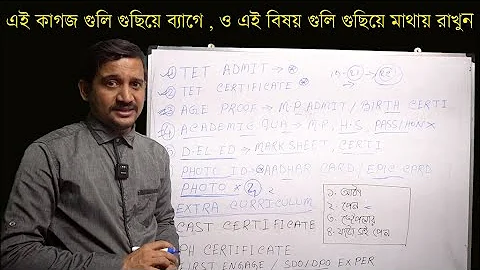 এই কাগজ গুলি গুছিয়ে ব্যাগে , ও এই বিষয় গুলি গুছিয়ে মাথায় রাখুন
① TET ADMIT →
② TET CERTIFICATE
③ AGE PROOF → M.P. ADMIT / BIRTH CERTI
④ ACADEMIC QUA → M.P, H.S, PASS/HON
D-EL-ED → MARKSHEET, CERTI
PHOTO ID → AADHAR CARD / EPIC CARD
PHOTO × 2
EXTRA CORRICULUM
CAST CERTIFICATE
PH CERTIFICATE
FIRST ENGAGE / SDO/DPO EXPER
২. পেন